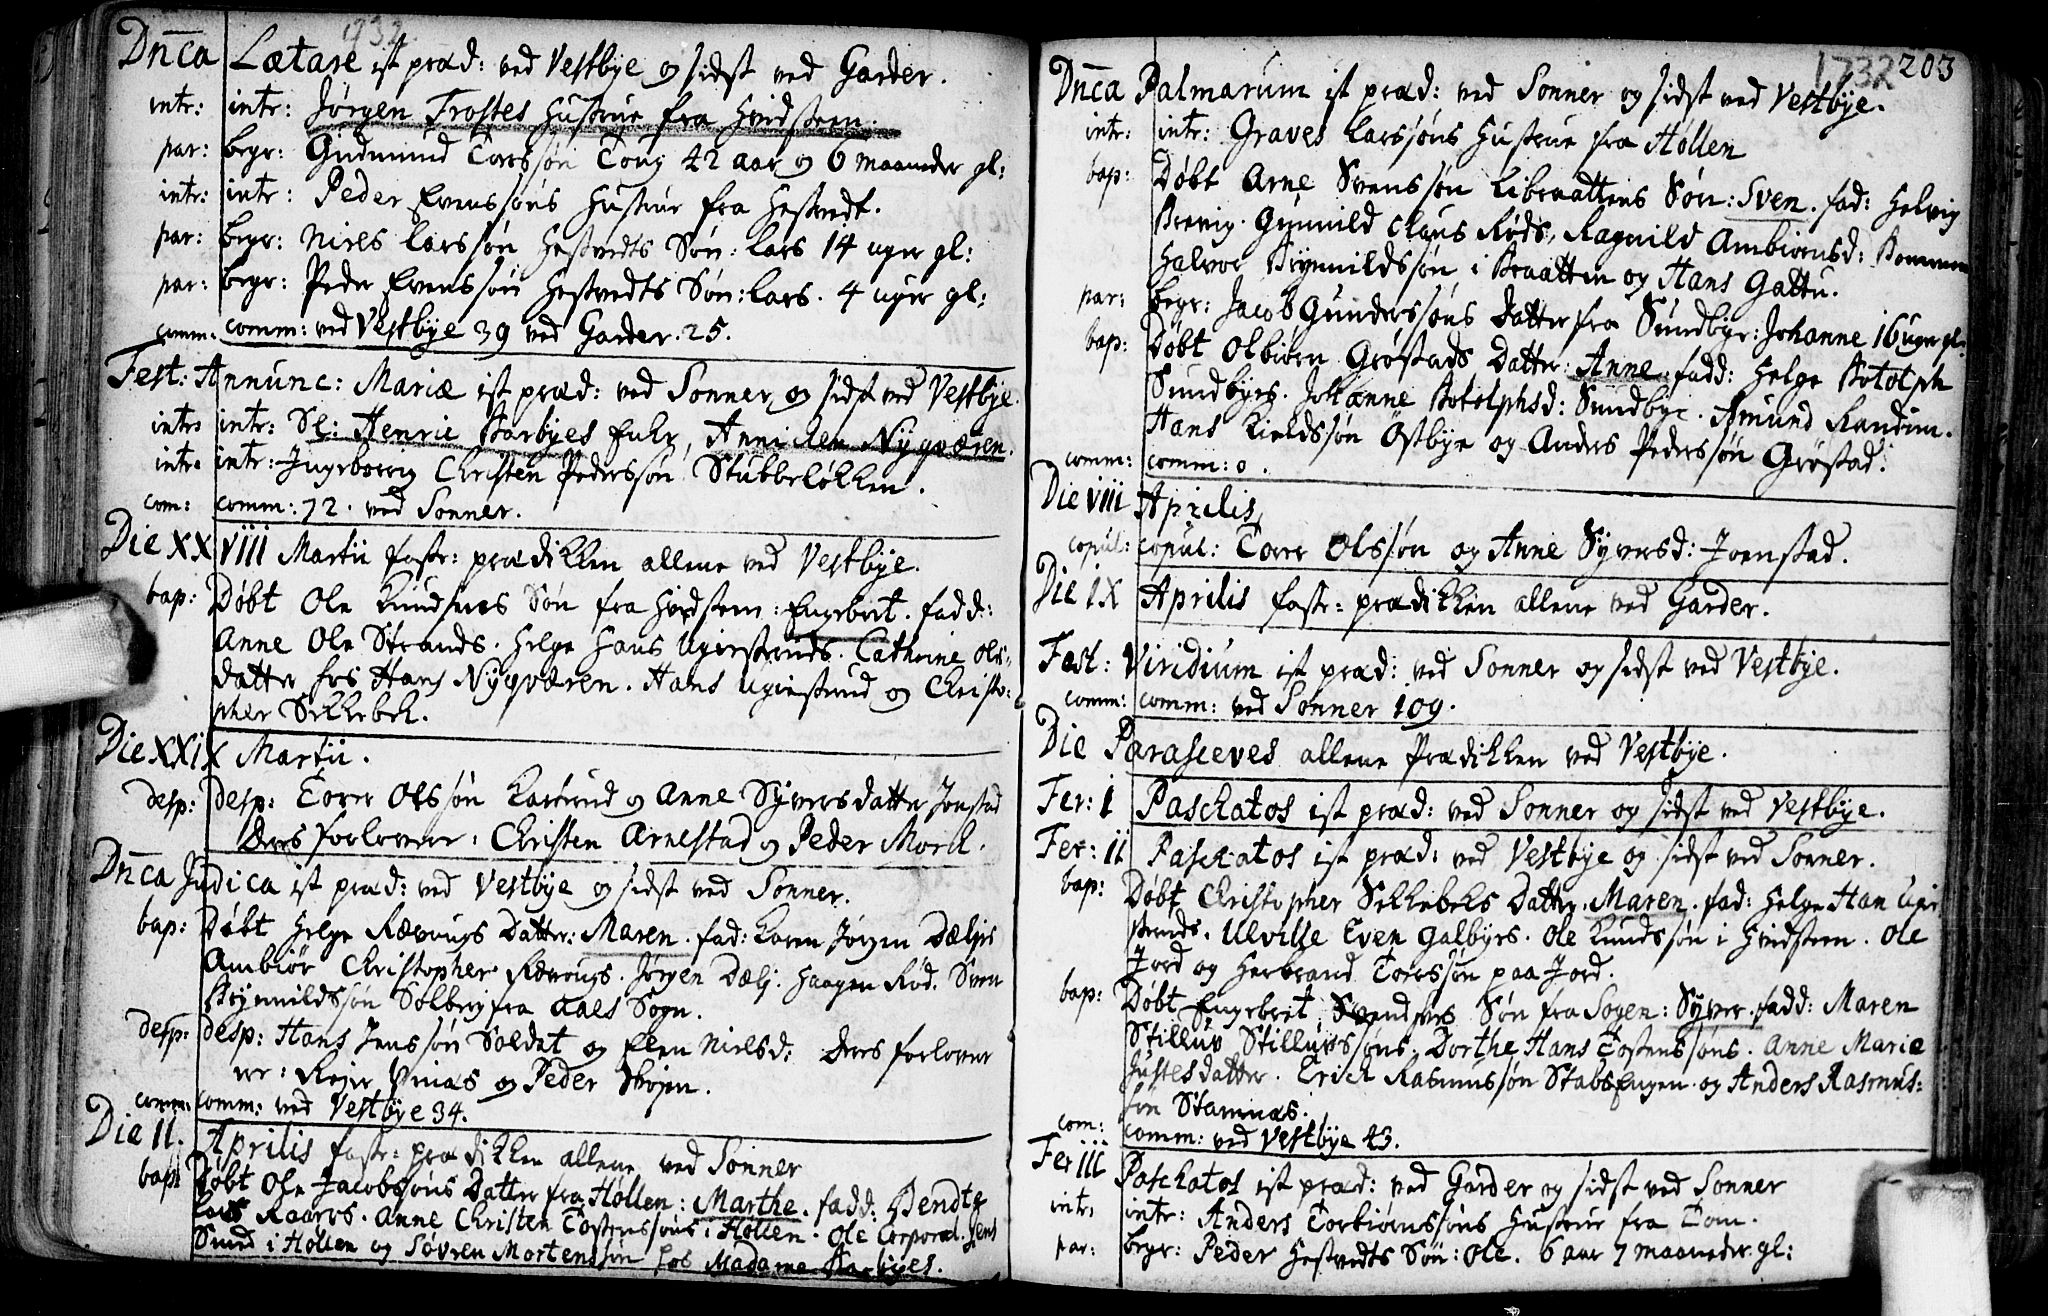 1732.
Dn̄ca Lætare ist præd: ved Vestbye og sidst ved Garder.
intr: intr: Jørgen Frostes Hustrue fra Hvidsteen.
par: begr: Gudmund Torssøn Toug 42 aar og 6 maaneder gl:
intr: intr: Peder Evenssøns Hustrue fra Hestvedt.
par: begr: Niels Larssøn Hestvedts Søn: Lars 14 uger gl:
par: begr: Peder Evenssøn Hestvedts Søn: Lars. 4 uger gl:
comm: comm: ved Vestbye 39 ved Garder. 25.
Fest: Annunc: Mariæ ist præd: ved Sonner og sidst ved Vestbye.
intr: intr: Sl: Henric Karbyes Enke, Annichen Nygværen.
intr: intr: Ingeborrig Christen Pederssøn Stubbeløkken.
com: comm: 72. ved Sonner.
Die XXVIII Martii faste-prædikken allene ved Vestbye.
bap: Døbt Ole Knudsøns Søn fra Hvidsteen: Engebret. fadd:
Anne Ole Strands. Helge Hans Ugerstruds. Cathrine Ols-
datter hos Hans Nygværen. Hans Ugerstrud og Christo-
pher Sekkebek.
Die XXIX Martii.
desp: desp: Torer Olssøn Kaserud og Anne Syversdatter Jonstad
Deres forlovere: Christen Arnestad og Peder Morck.
Dn̄ca Judica ist præd: ved Vestbye og sidst ved Sonner.
bap: Døbt Helge Rævougs Datter: Maren. fad: Karen Jørgen Dæljes
Ambiør Christopher Rævougs. Jørgen Dælj. Haagen Rød. Sven
Brynnildssøn Solberg fra Aaes Sogn.
desp: desp: Hans Jenssøn Soldat og Elen Nielsd: Deres forlover
ere: Rejer Vinæs og Peder Skojen.
comm: comm: ved Vestbye 34.
Die II. Aprilis faste-prædikken allene ved Sonner
bap: Døbt Ole Jacobssøns Datter fra Høllen: Marthe. fadd: Bendte
Lars Kaares. Anne Christen Tostenssøns i Høllen. Ole Corporal. Jens
Sund i Høllen og Søvren Mortenssøn hos Madame Karbyes.
1732 203
Dn̄ca Palmarum ist præd: ved Sonner og sidst ved Vestbye.
intr: intr: Graves Larssøns Hustrue fra Høllen
bap: Døbt Arne Svenssøn Libraattens Søn: Sven. fad: Helvig
Brevig. Gunnild Claus Røds, Ragnild Ambiørnsd:
Halvor Brynnildssøn i Braatten og Hans Gattu.
par: begr: Jacob Gunderssøns Datter fra Sundbye: Johanne 16 uger gl:
bap: Døbt Olbiørn Grøstads Datter: Anne. fadd: Helge Botolph
Sundbyes. Johanne Botolphsd: Sundbye. Amund Randem.
Hans Kieldssøn Østbye og Anders Pederssøn Grøstad.
comm: comm: 0.
Die VIII Aprilis
copul: copul: Torer Olssøn og Anne Syversd: Joenstad.
Die IX Aprilis faste-prædikken allene ved Garder.
Fest: Viridium ist præd: ved Sonner og sidst ved Vestbye.
comm: comm: ved Sonner 109.
Die Parasceves allene Prædikken ved Vestbye.
Fer: I Paschatos ist præd: ved Sonner og sidst ved Vestbye.
Fer: II Paschatos ist præd: ved Vestbye og sidst ved Sonner.
bap: Døbt Christopher Sekkebeks Datter. Maren. fad: Helge Hans Uger
struds. Ulville Even Galbyes. Ole Knudssøn i Hvidsteen. Ole
Jord og Herbrand Torssøn paa Jord.
bap: Døbt Engebret Søn fra Sogen: Syver. fadd: Maren
Stilluv Stilluvssøns. Dorthe Hans Tostenssøns. Anne Marie
Justesdatter. Erick Rasmussøn Stabsengen. og Anders Rasmus-
søn Stamnæs.
com: comm: ved Vestbye 43.
Fer III Paschatos ist præd: ved Garder og sidst ved Sonner
intr: intr: Anders Torbiørnssøns Hustrue fra Tom.
par: begr: Peder Hestvedts Søn: Ole. 6 aar 7 maaneder gl: